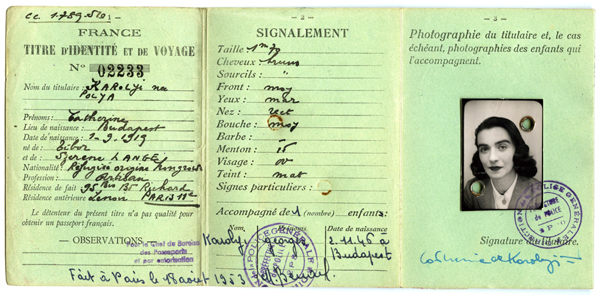 CC. 1.789.510:
FRANCE
TITRE D'IDENTITÉ ET DE VOYAGE
N° 02233
Nom du titulaire: KAROLYI née
POLYA
Prénoms: Catherine
Lieu de naissance: Budapest
Date de naissance: 1-9-1919
né de: Tibor
et de: Szerene LANGE
Nationalité: Réfugiée origine hongroise
Profession: Artisan
Résidence de fait 95 Bd Richard
Résidence antérieure Lenoir PARIS 11e
Le détenteur du présent titre n'a pas qualité pour
obtenir un passeport français.
— OBSERVATIONS
Pour le Chef de Bureau
des Passeports
et par autorisation
Fait à Paris le 18 août 1953
- 2 -
SIGNALEMENT
Taille 1m70
Cheveux bruns
Sourcils: "
Front: moy
Yeux: mar
Nez: rect
Bouche: moy
Barbe:
Menton: 
Visage: ov
Teint: mat
Signes particuliers:
Accompagné de 1 (nombre) enfants:
Date de naissance
Karolyi Georges 2.11.46 à
Budapest
- 3 -
Photographie du titulaire et, le cas
échéant, photographies des enfants qui
l'accompagnent.
Signature du titulaire.
Catherine de Karolyi